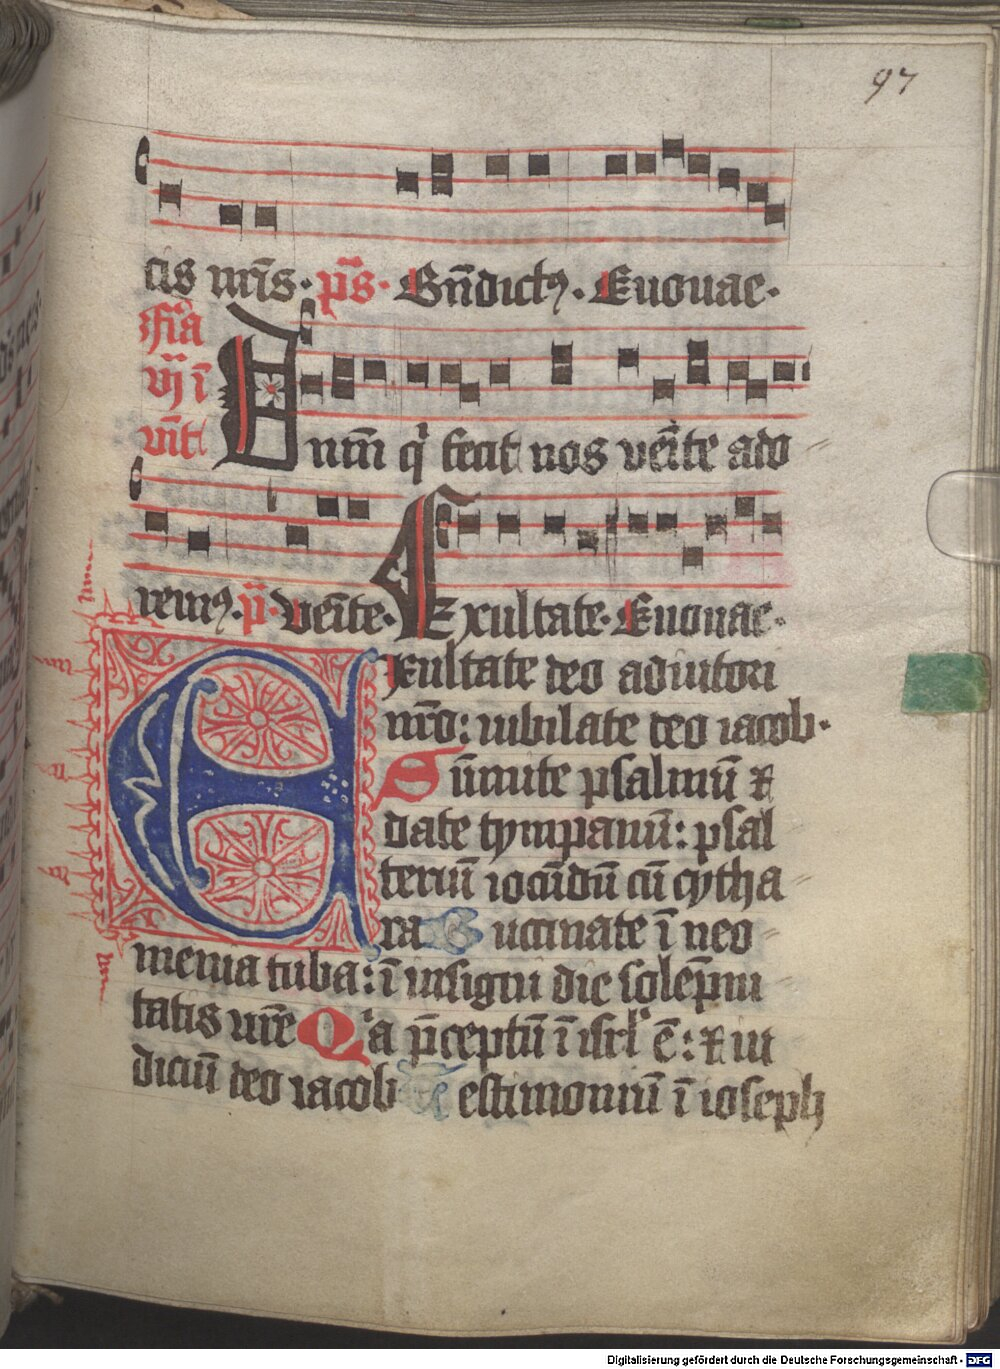 97
cis nr̄is. p̄s. Bn̄dictꝰ. Euouae.
Fīa vj ī vīt
Dnm̄ qͥ fecit nos veīte ado
remꝰ. p̄. Veīte. A Exultate. Euouae.
Exultate deo adiutori
nr̄o: iubilate deo iacob.
Sūmite psalmū ⁊
date tympanum: psal
teriū iocūdū cū cytha
ra Buccinate ī neo
menia tuba: ī insigni die solēpni
tatis vr̄e Qͥa p̄ceptū ī isrl̓ ē: ⁊ iu
diciū deo iacob Testimoniū ī ioseph
Digitalisierung gefördert durch die Deutsche Forschungsgemeinschaft - DFG